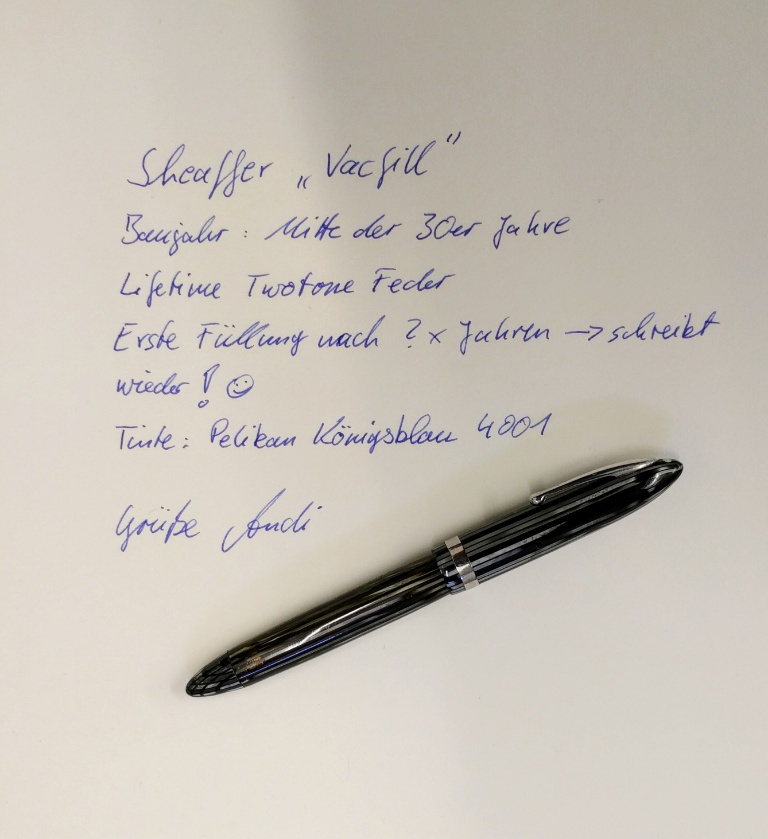 Sheaffer „Vacfill"
Baujahr: Mitte der 30er Jahre
Lifetime Twotone Feder
Erste Füllung nach ? x Jahren → schreibt
wieder! ☺
Tinte: Pelikan Königsblau 4001
Grüße Andi